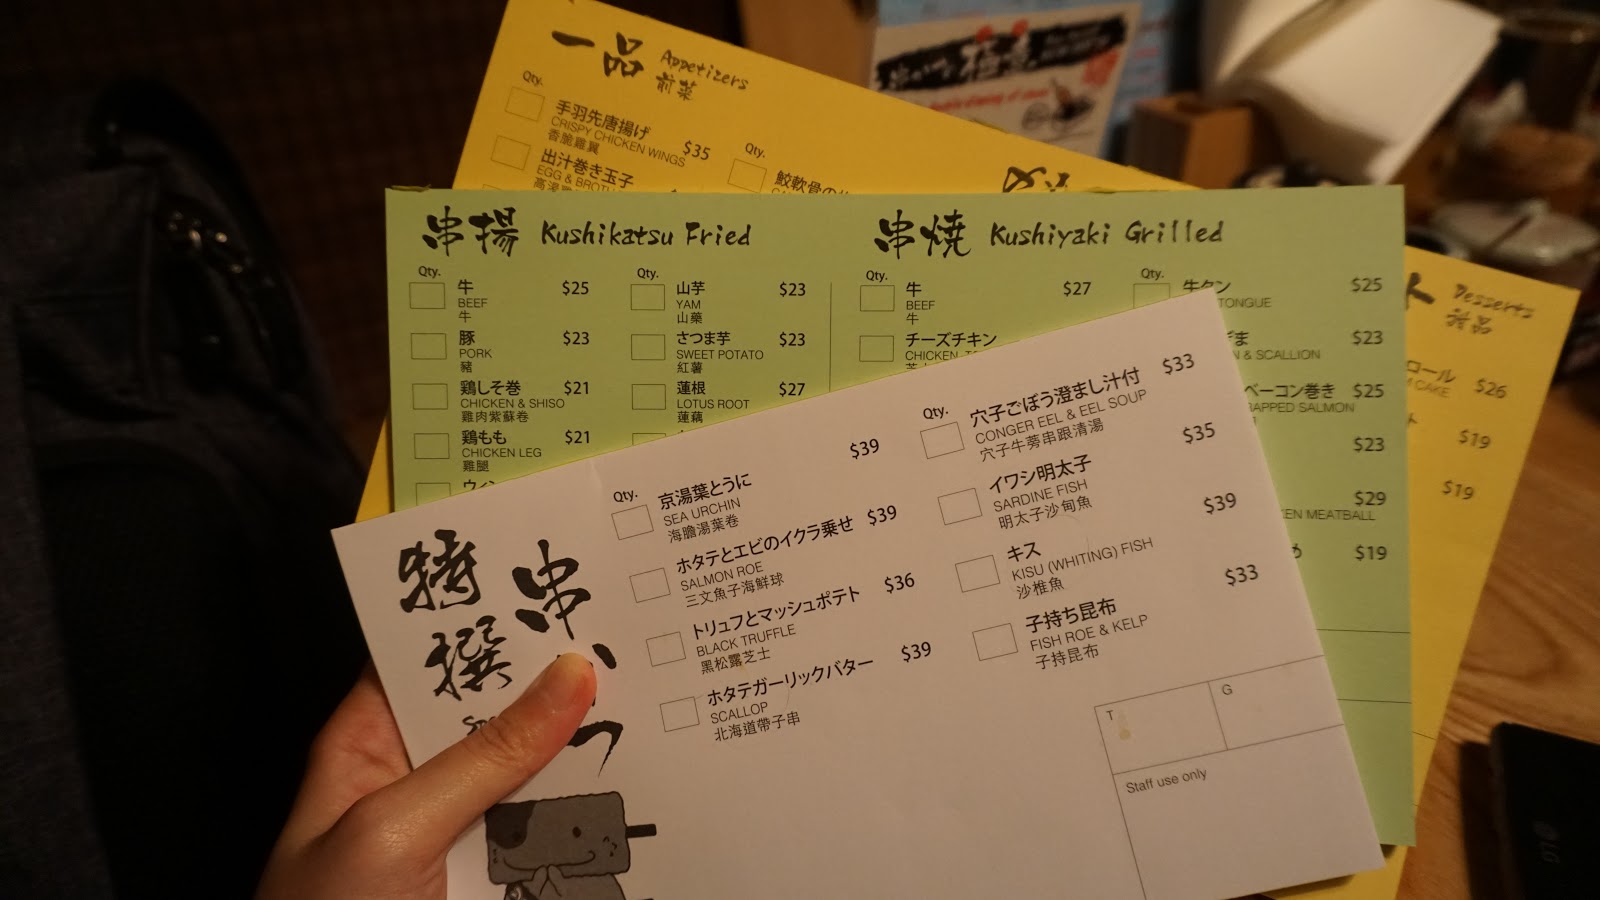 一品 Appetizers
前菜
Qty.
手羽先唐揚げ
CRISPY CHICKEN WINGS $35
香脆雞翼
出汁巻き玉子
EGG &
Qty.
鮫軟骨の
串揚 Kushikatsu Fried
Qty.
牛 $25
BEEF
牛
豚 $23
PORK
豬
鶏しそ巻 $21
CHICKEN & SHISO
雞肉紫蘇卷
鶏もも $21
CHICKEN LEG
雞腿
Qty.
山芋 $23
YAM
山藥
さつま芋 $23
SWEET POTATO
紅薯
蓮根 $27
LOTUS ROOT
蓮藕
串焼 Kushiyaki Grilled
Qty.
牛 $27
BEEF
牛
チーズチキン
CHICKEN
Qty.
牛タン $25
TONGUE
$23
& SCALLION
ベーコン巻き $25
SALMON
$23
$29
MEATBALL
$19
Desserts
甜品
ロール $26
CAKE
$19
$19
特撰
串
Qty.
京湯葉とうに $39
SEA URCHIN
海膽湯葉卷
ホタテとエビのイクラ乗せ $39
SALMON ROE
三文魚子海鮮球
トリュフとマッシュポテト $36
BLACK TRUFFLE
黑松露芝士
ホタテガーリックバター $39
SCALLOP
北海道帶子串
Qty.
穴子ごぼう澄まし汁付 $33
CONGER EEL & EEL SOUP
穴子牛蒡串跟清湯
イワシ明太子 $35
SARDINE FISH
明太子沙甸魚
キス $39
KISU (WHITING) FISH
沙椎魚
子持ち昆布 $33
FISH ROE & KELP
子持昆布
T
G
Staff use only